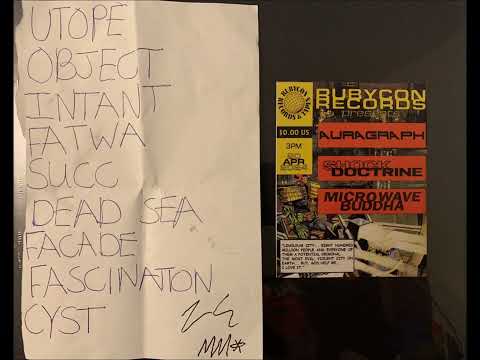 UTOPE
OBJECT
INTANT
FATWA
SUCC
DEAD SEA
FACADE
FASCINATION
CYST
RUBYCON
RECORDS
presents
$0.00 US
3PM
20
APR
2024
AURAGRAPH
SHOCK
DOCTRINE
MICROWAVE
BUDDHA
"LONGDUM CITY... EIGHT HUNDRED
MILLION PEOPLE AND EVERYONE OF
THEM A POTENTIAL CRIMINAL.
THE MOST EVIL, VIOLENT CITY ON
EARTH... BUT, GOD HELP ME,
I LOVE IT."